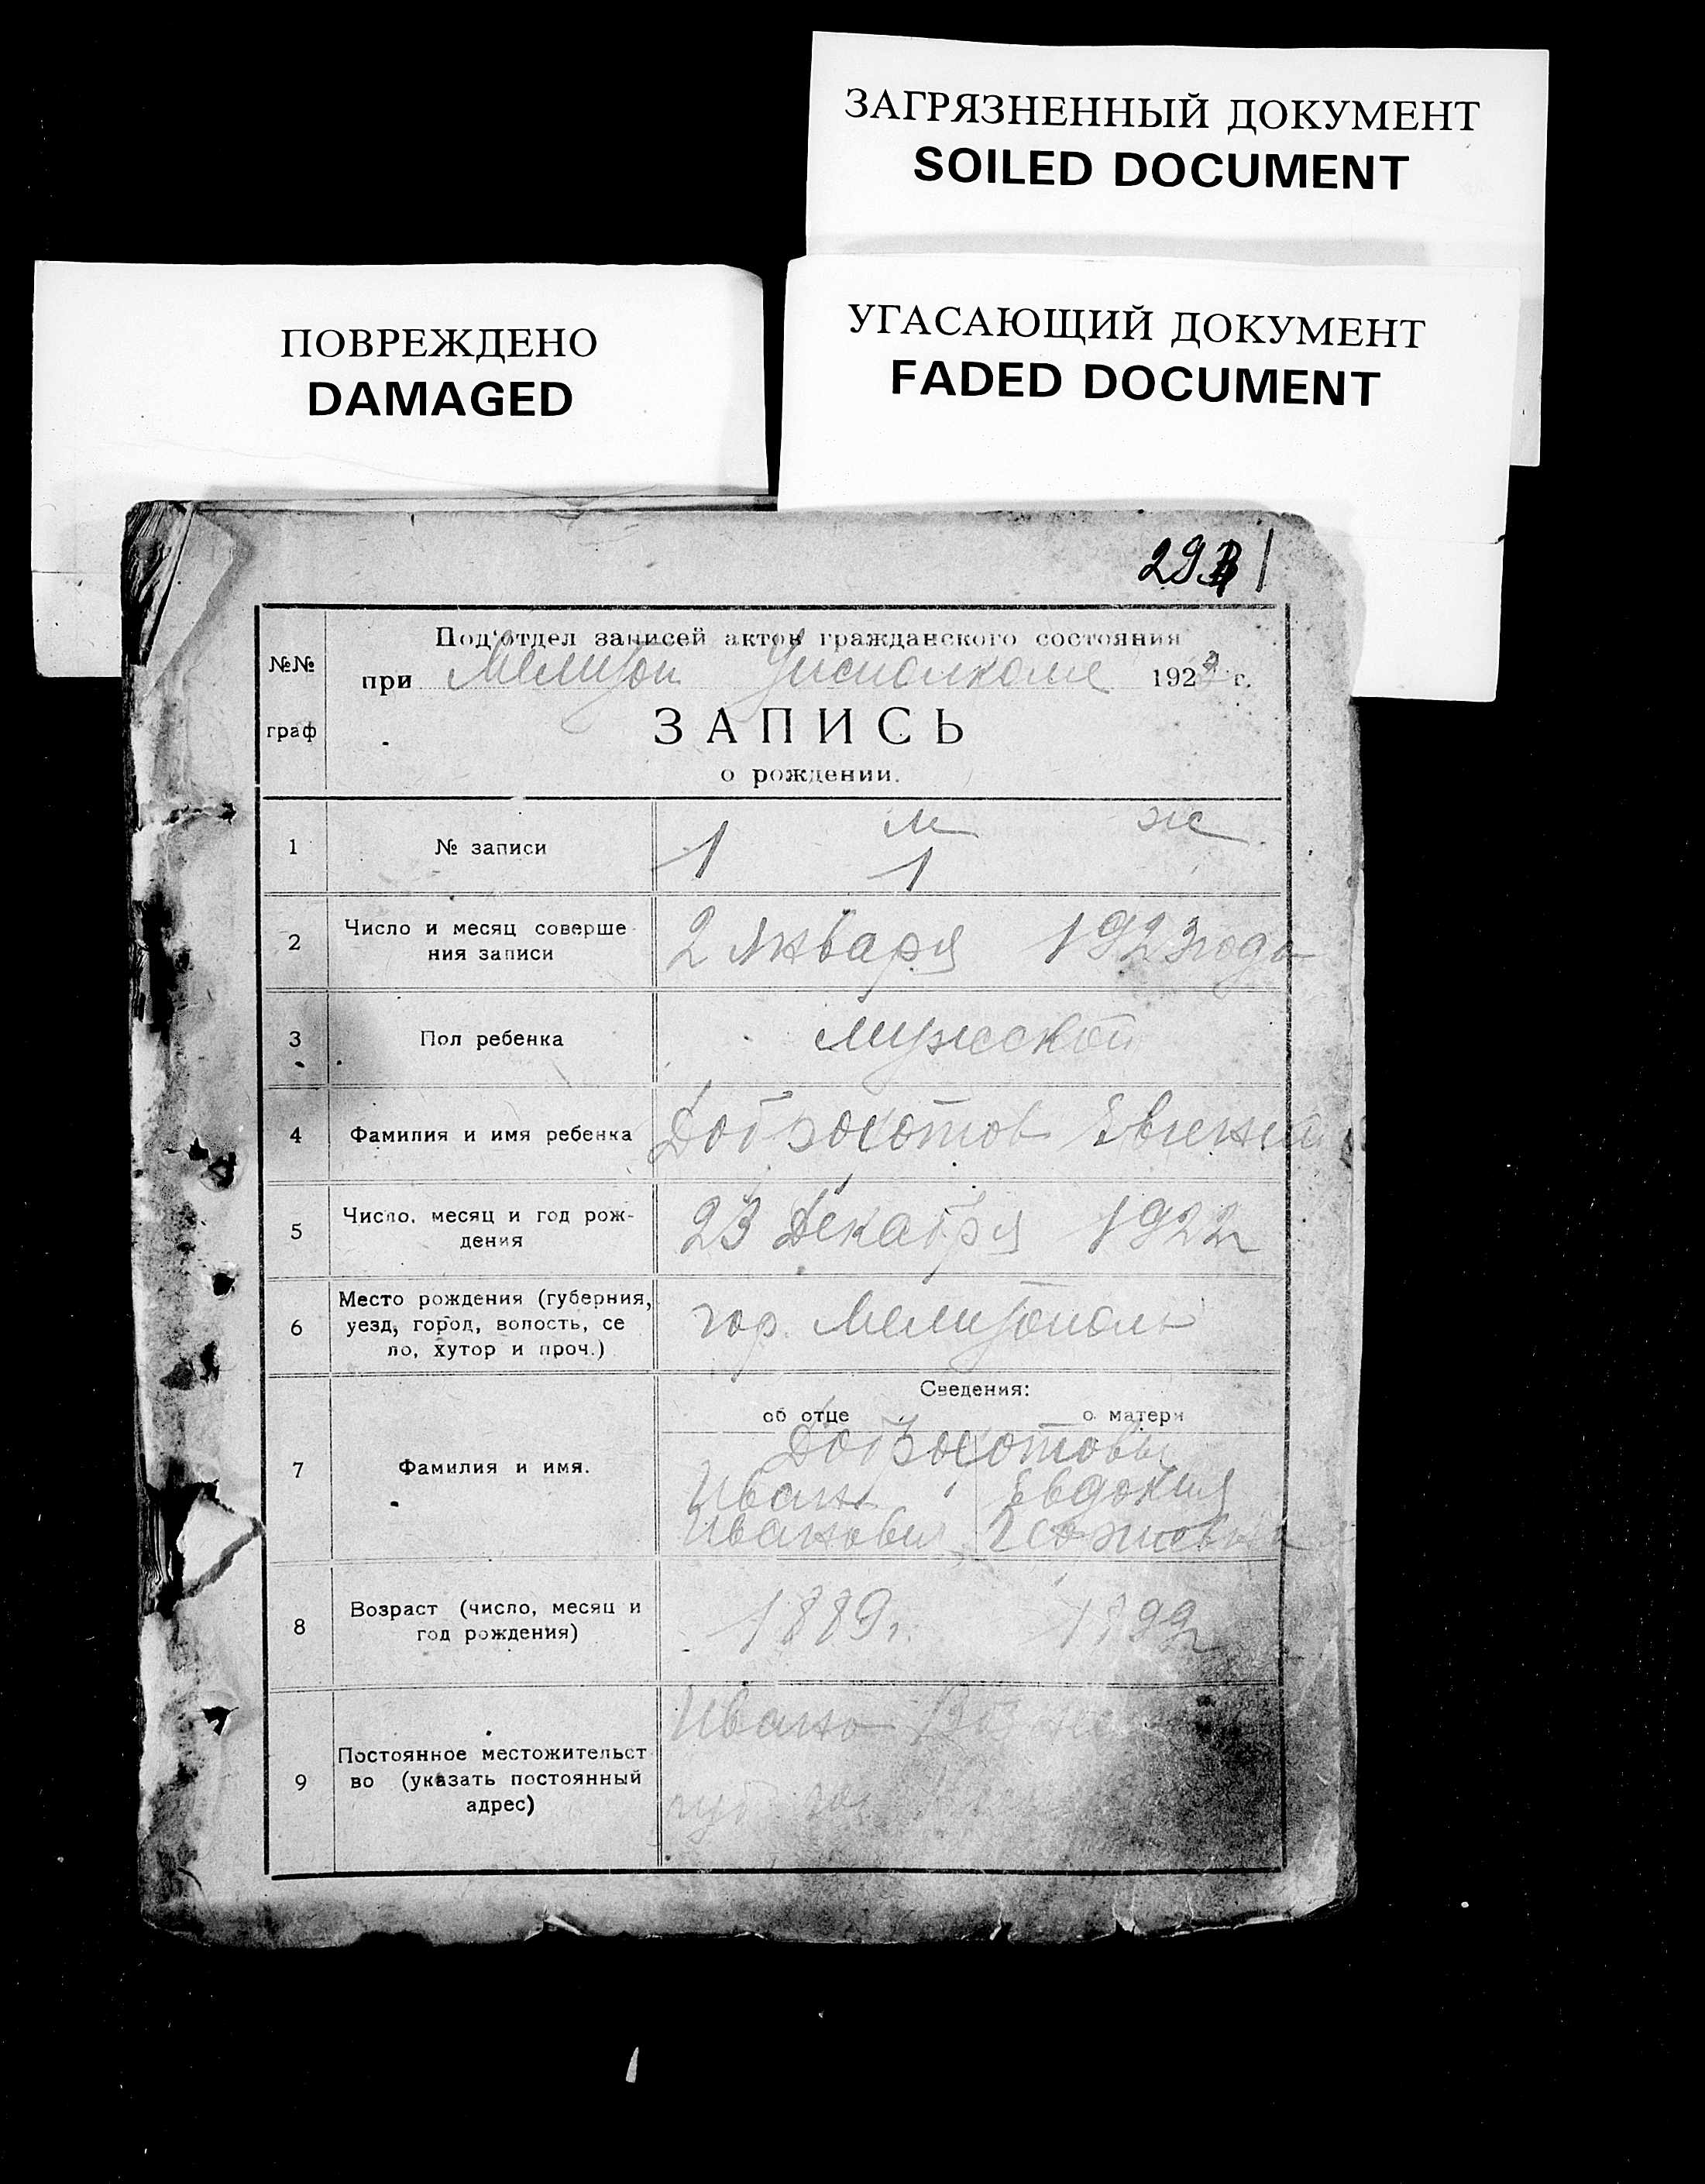 ЗАГРЯЗНЕННЫЙ ДОКУМЕНТ
SOILED DOCUMENT
ПОВРЕЖДЕНО
DAMAGED
УГАСАЮЩИЙ ДОКУМЕНТ
FADED DOCUMENT
Под'отдел записей актов гражданского состояния
№№
при Мелитоп Уисполкоме 1923 г.
граф
ЗАПИСЬ
о рождении.
1 № записи 1 м 1 ж
2 Число и месяц соверше
ния записи 2 Января 1923 года
3 Пол ребенка мужской
4 Фамилия и имя ребенка Доброхотов Евгений
5 Число, месяц и год рож-
дения 23 Декабря 1922
6 Место рождения (губерния,
уезд, город, волость, се
ло, хутор и проч.) гор. Мелитополь
Сведения:
об отце о матери
7 Фамилия и имя. Доброхотовы
Иван Евдокия
Иванович
8 Возраст (число, месяц и
год рождения) 1889 г. 1899
9 Постоянное местожительст
во (указать постоянный
адрес) Ивано
губ. гор